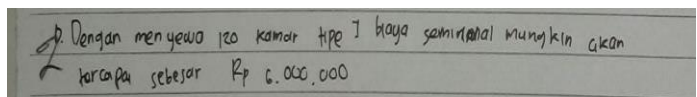 Dengan menyewa 120 kamar tipe I biaya seminimal mungkin akan
tercapai sebesar Rp 6.000.000